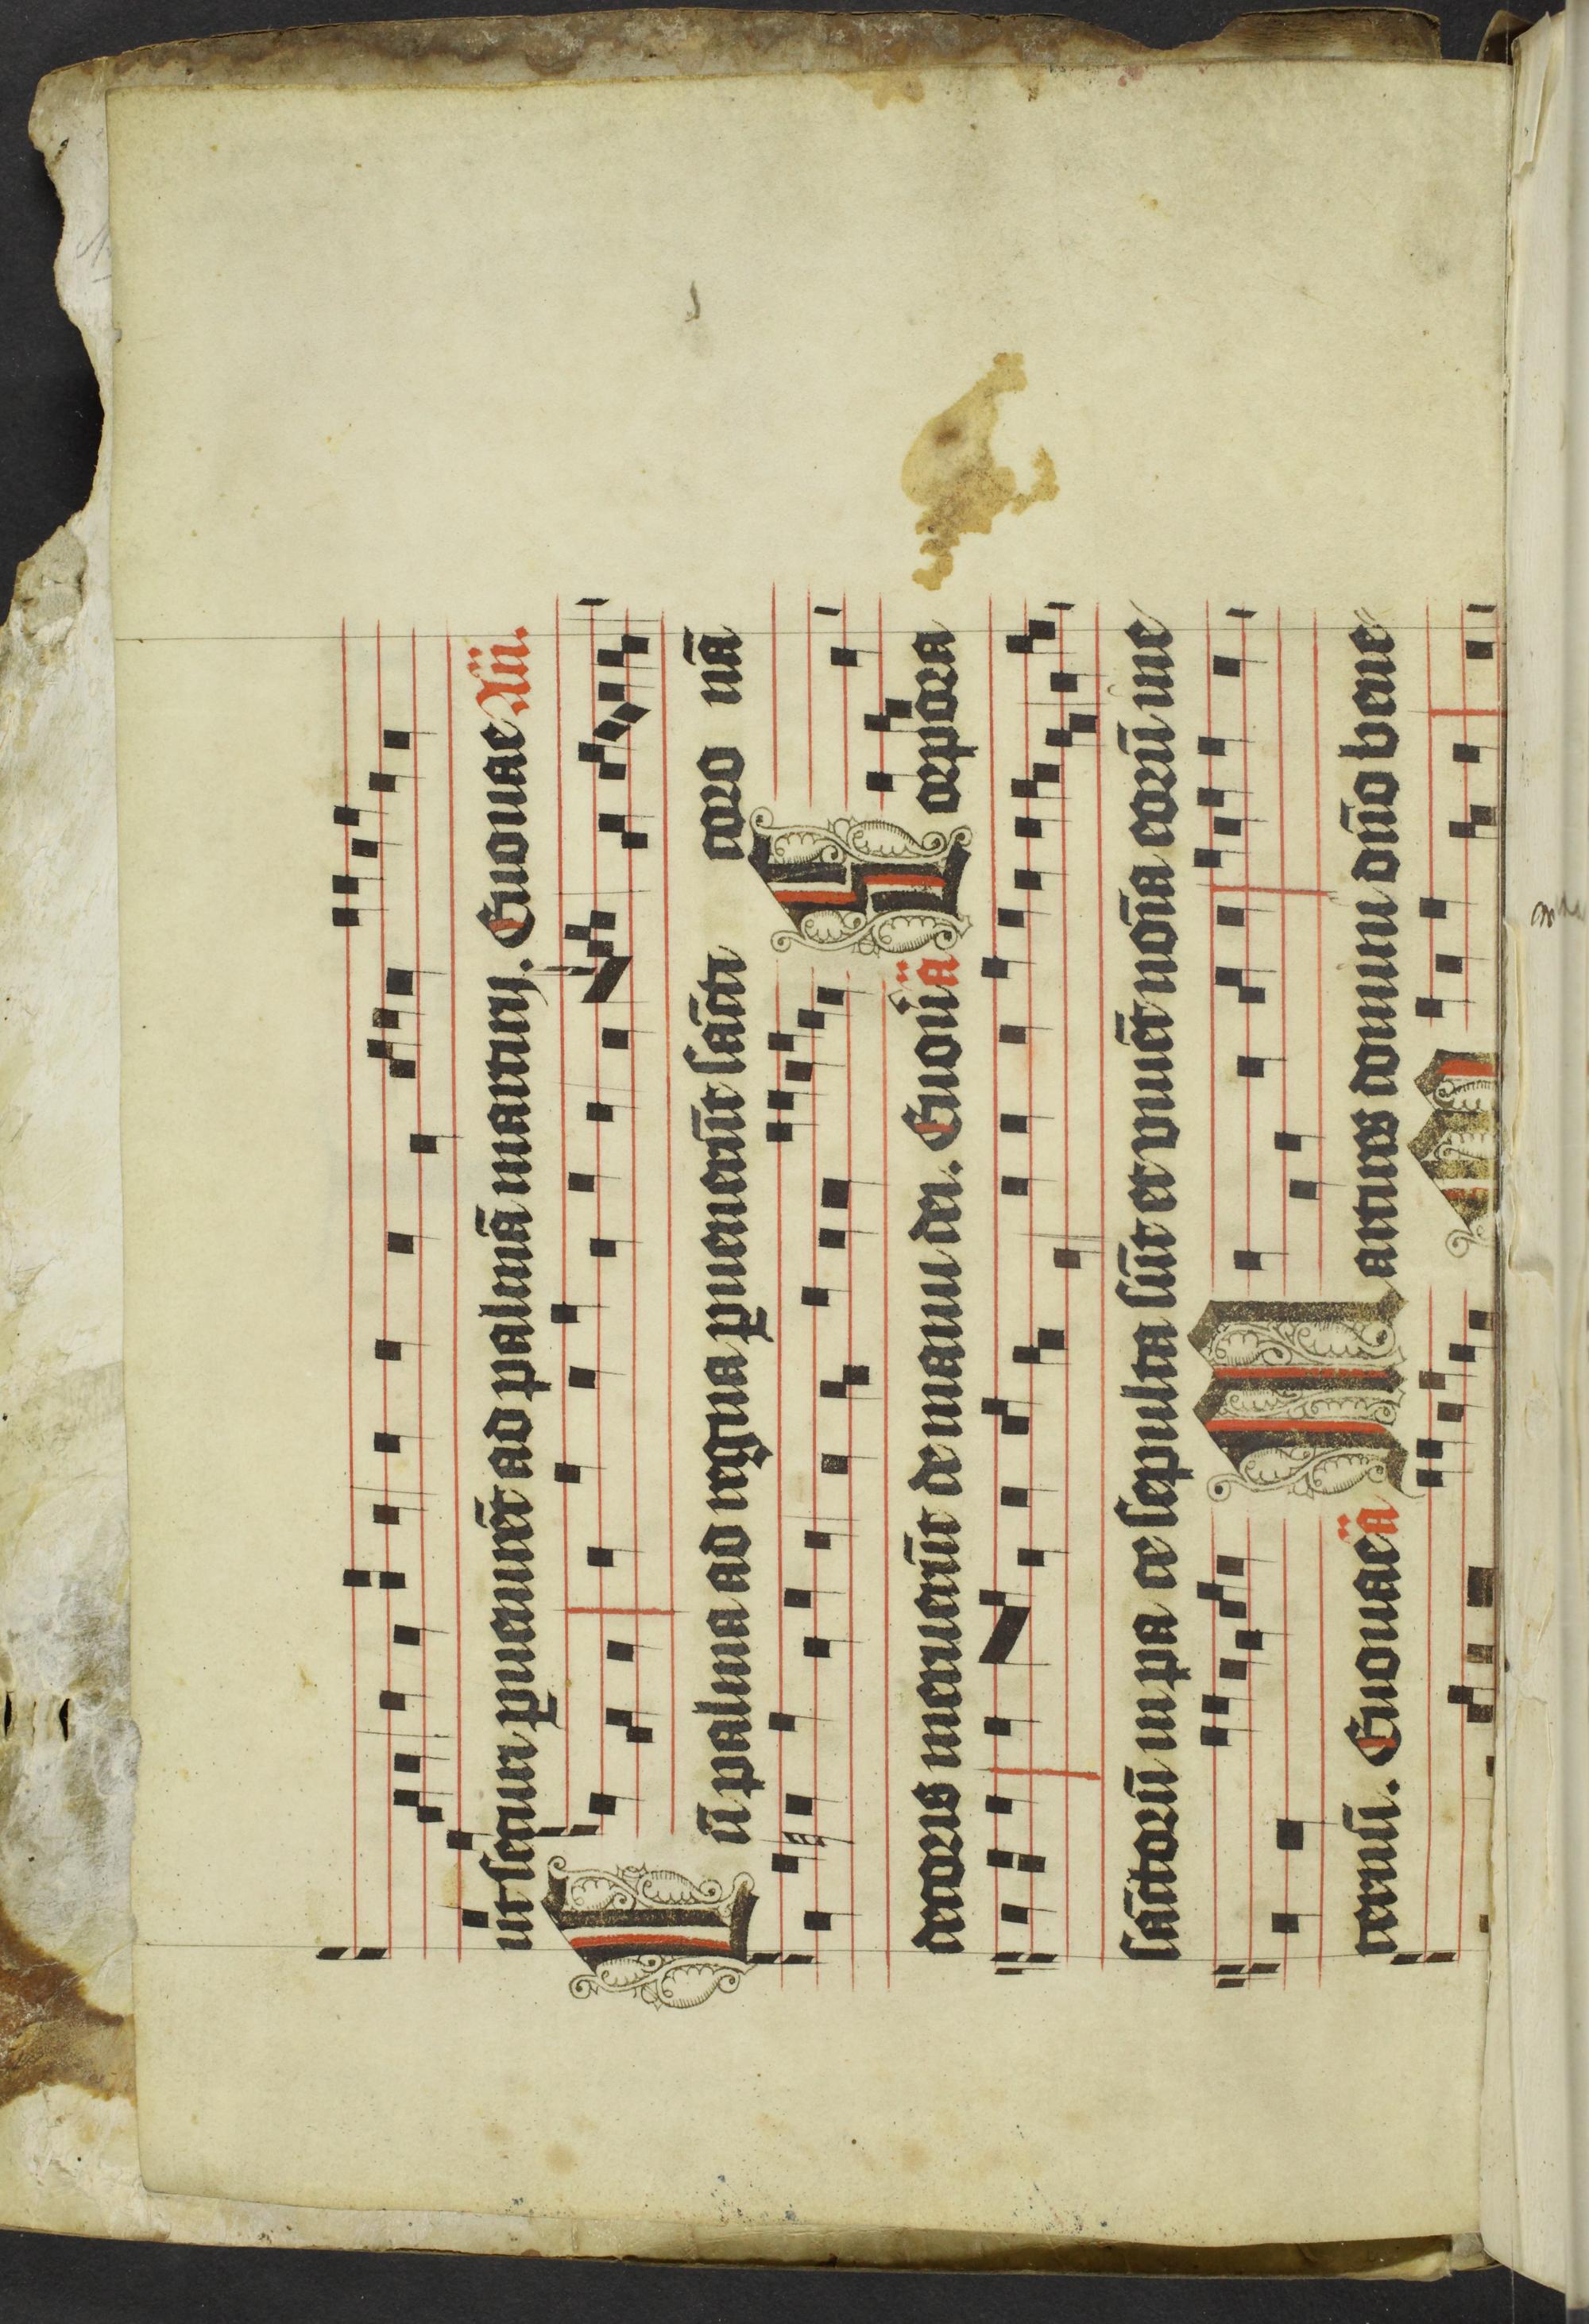 ut secuti pueniūēt ad palmā martirij. Euouae Aliı.
Cū palma ad regna puenerūt sācti coro nā
decoris meruerūt de manu dei. Euouā a Corpora
sāctorū in pa ce sepulta sūt et viuēt noīa eorū ine
ternū. Euouae a Martires domini dn̄o bene